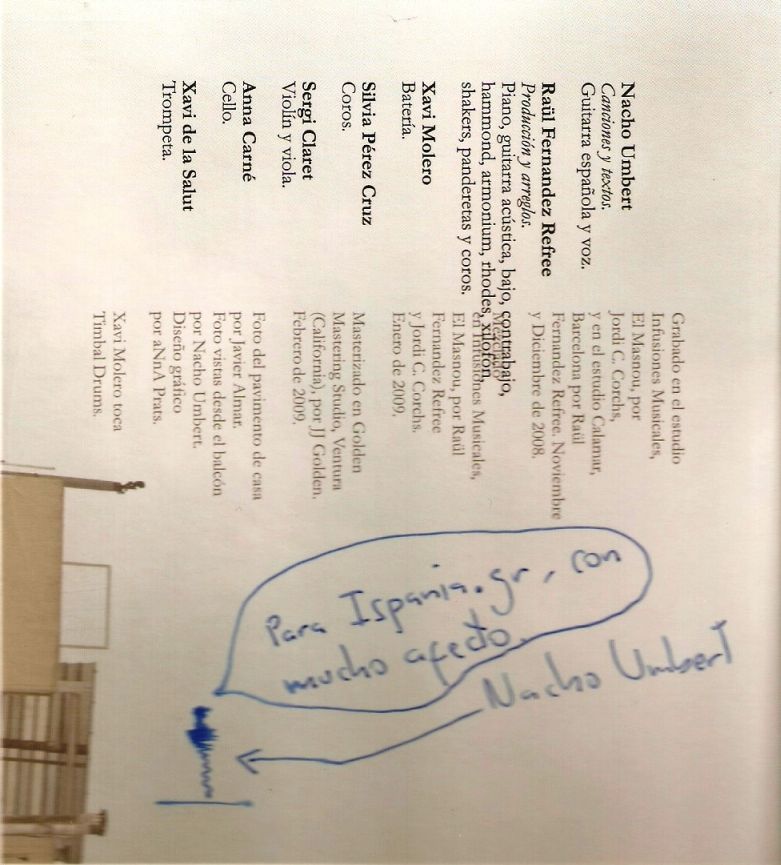 Nacho Umbert
Canciones y textos.
Guitarra española y voz.
Raül Fernandez Refree
Producción y arreglos.
Piano, guitarra acústica, bajo, contrabajo,
hammond, armonium, rhodes, xilófon,
shakers, panderetas y coros.
Xavi Molero
Batería.
Silvia Pérez Cruz
Coros.
Sergi Claret
Violín y viola.
Anna Carné
Cello.
Xavi de la Salut
Trompeta.
Grabado en el estudio
Infusiones Musicales,
El Masnou, por
Jordi C. Corchs,
y en el estudio Calamar,
Barcelona por Raül
Fernandez Refree. Noviembre
y Diciembre de 2008.
Mezclado
en Infusiones Musicales,
El Masnou, por Raül
Fernandez Refree
y Jordi C. Corchs.
Enero de 2009.
Masterizado en Golden
Mastering Studio, Ventura
(California), por JJ Golden.
Febrero de 2009.
Foto del pavimento de casa
por Javier Almar.
Foto vistas desde el balcón
por Nacho Umbert.
Diseño gráfico
por aNnA Prats.
Xavi Molero toca
Timbal Drums.
Para Ispania.gr, con
mucho afecto.
Nacho Umbert